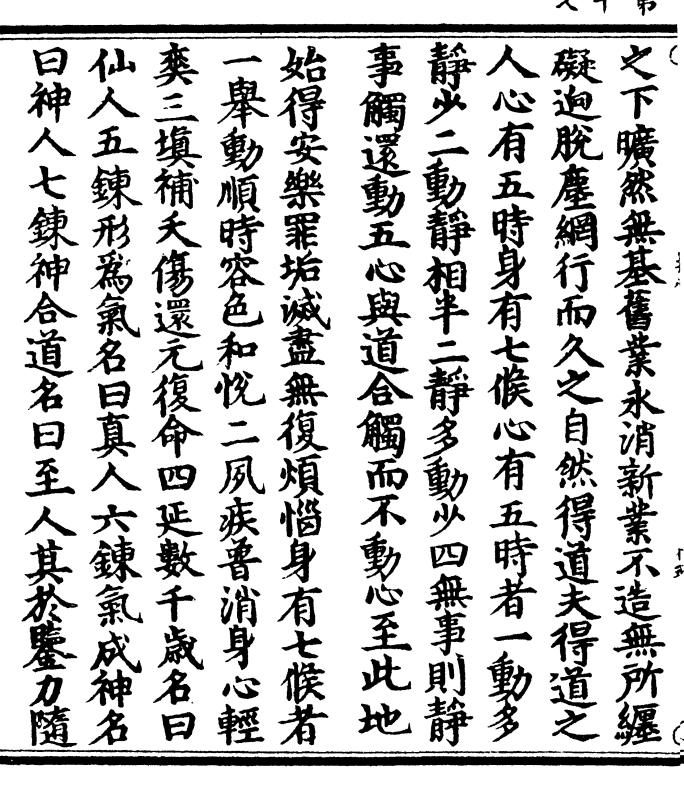 之下曠然無基舊業永消新業不造無所纏
礙迥脫塵網行而久之自然得道夫得道之
人心有五時身有七候心有五時者一動多
靜少二動靜相半二靜多動少四無事則靜
事觸還動五心與道合觸而不動心至此地
始得安樂罪垢滅盡無復煩惱身有七候者
一舉動順時容色和悅二夙疾普消身心輕
爽三塡補夭傷還元復命四延數千歲名曰
仙人五鍊形爲氣名曰真人六鍊氣成神名
曰神人七鍊神合道名曰至人其於鑒力隨